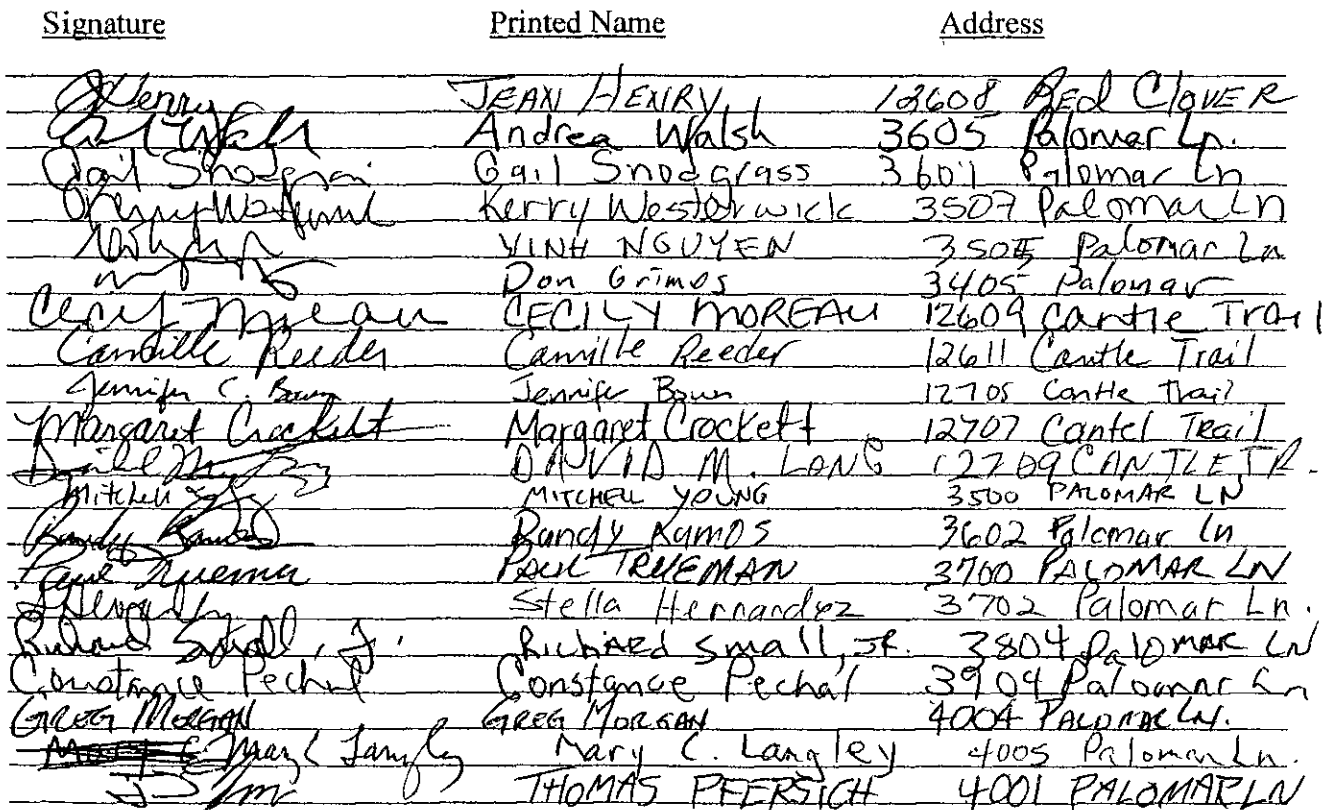 Signature Printed Name Address
JHenry JEAN HENRY 12608 REd ClOVER
Andrea Walsh 3605 Palomar Ln.
Gail Snodgrass Gail Snodgrass 3601 Palomar Ln
Kerry Westerwick 3507 Palomar Ln
VINH NGUYEN 3505 Palomar Ln
Don Grimes 3405 Palomar
Cecily Moreau CECILY MOREAU 12609 Cantle Trail
Camille Reeder Camille Reeder 12611 Cantle Trail
Jennifer C. Bown Jennifer Bown 12705 Cantle Trail
Margaret Crockett Margaret Crockett 12707 Cantel Trail
DAVID M. LONG 12709 CANTLE TR.
Mitchell MITCHELL YOUNG 3500 PALOMAR LN
Randy Ramos Randy Ramos 3602 Palomar Ln
Paul Trueman PAUL TRUEMAN 3700 PALOMAR LN
Stella Hernandez 3702 Palomar Ln.
Richard Small, Jr. Richard Small, JR. 3804 Palomar LN
Constance Pechal Constance Pechal 3904 Palomar Ln
GREG MORGAN GREG MORGAN 4004 PALOMAR LN.
Mary C Langley Mary C. Langley 4005 Palomar Ln.
THOMAS PFERSICH 4001 PALOMAR LN